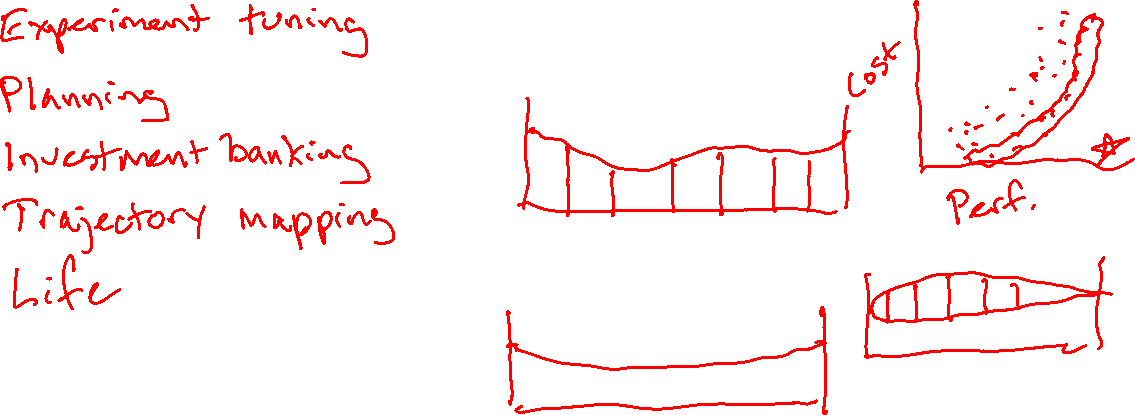 Experiment tuning
Planning
Investment banking
Trajectory mapping
Life
Cost
Perf.